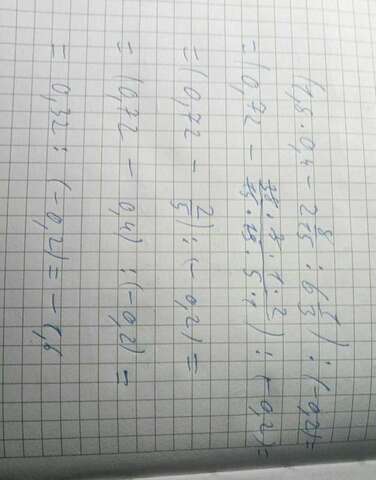 (1,8 · 0,4 − 2 8/15 : 6 1/3) : (−0,2) =
= (0,72 − 38 · 3 · 1 · 2 / 15 · 19 · 5 · 1) : (−0,2) =
= (0,72 − 2/5) : (−0,2) =
= (0,72 − 0,4) : (−0,2) =
= 0,32 : (−0,2) = −1,6